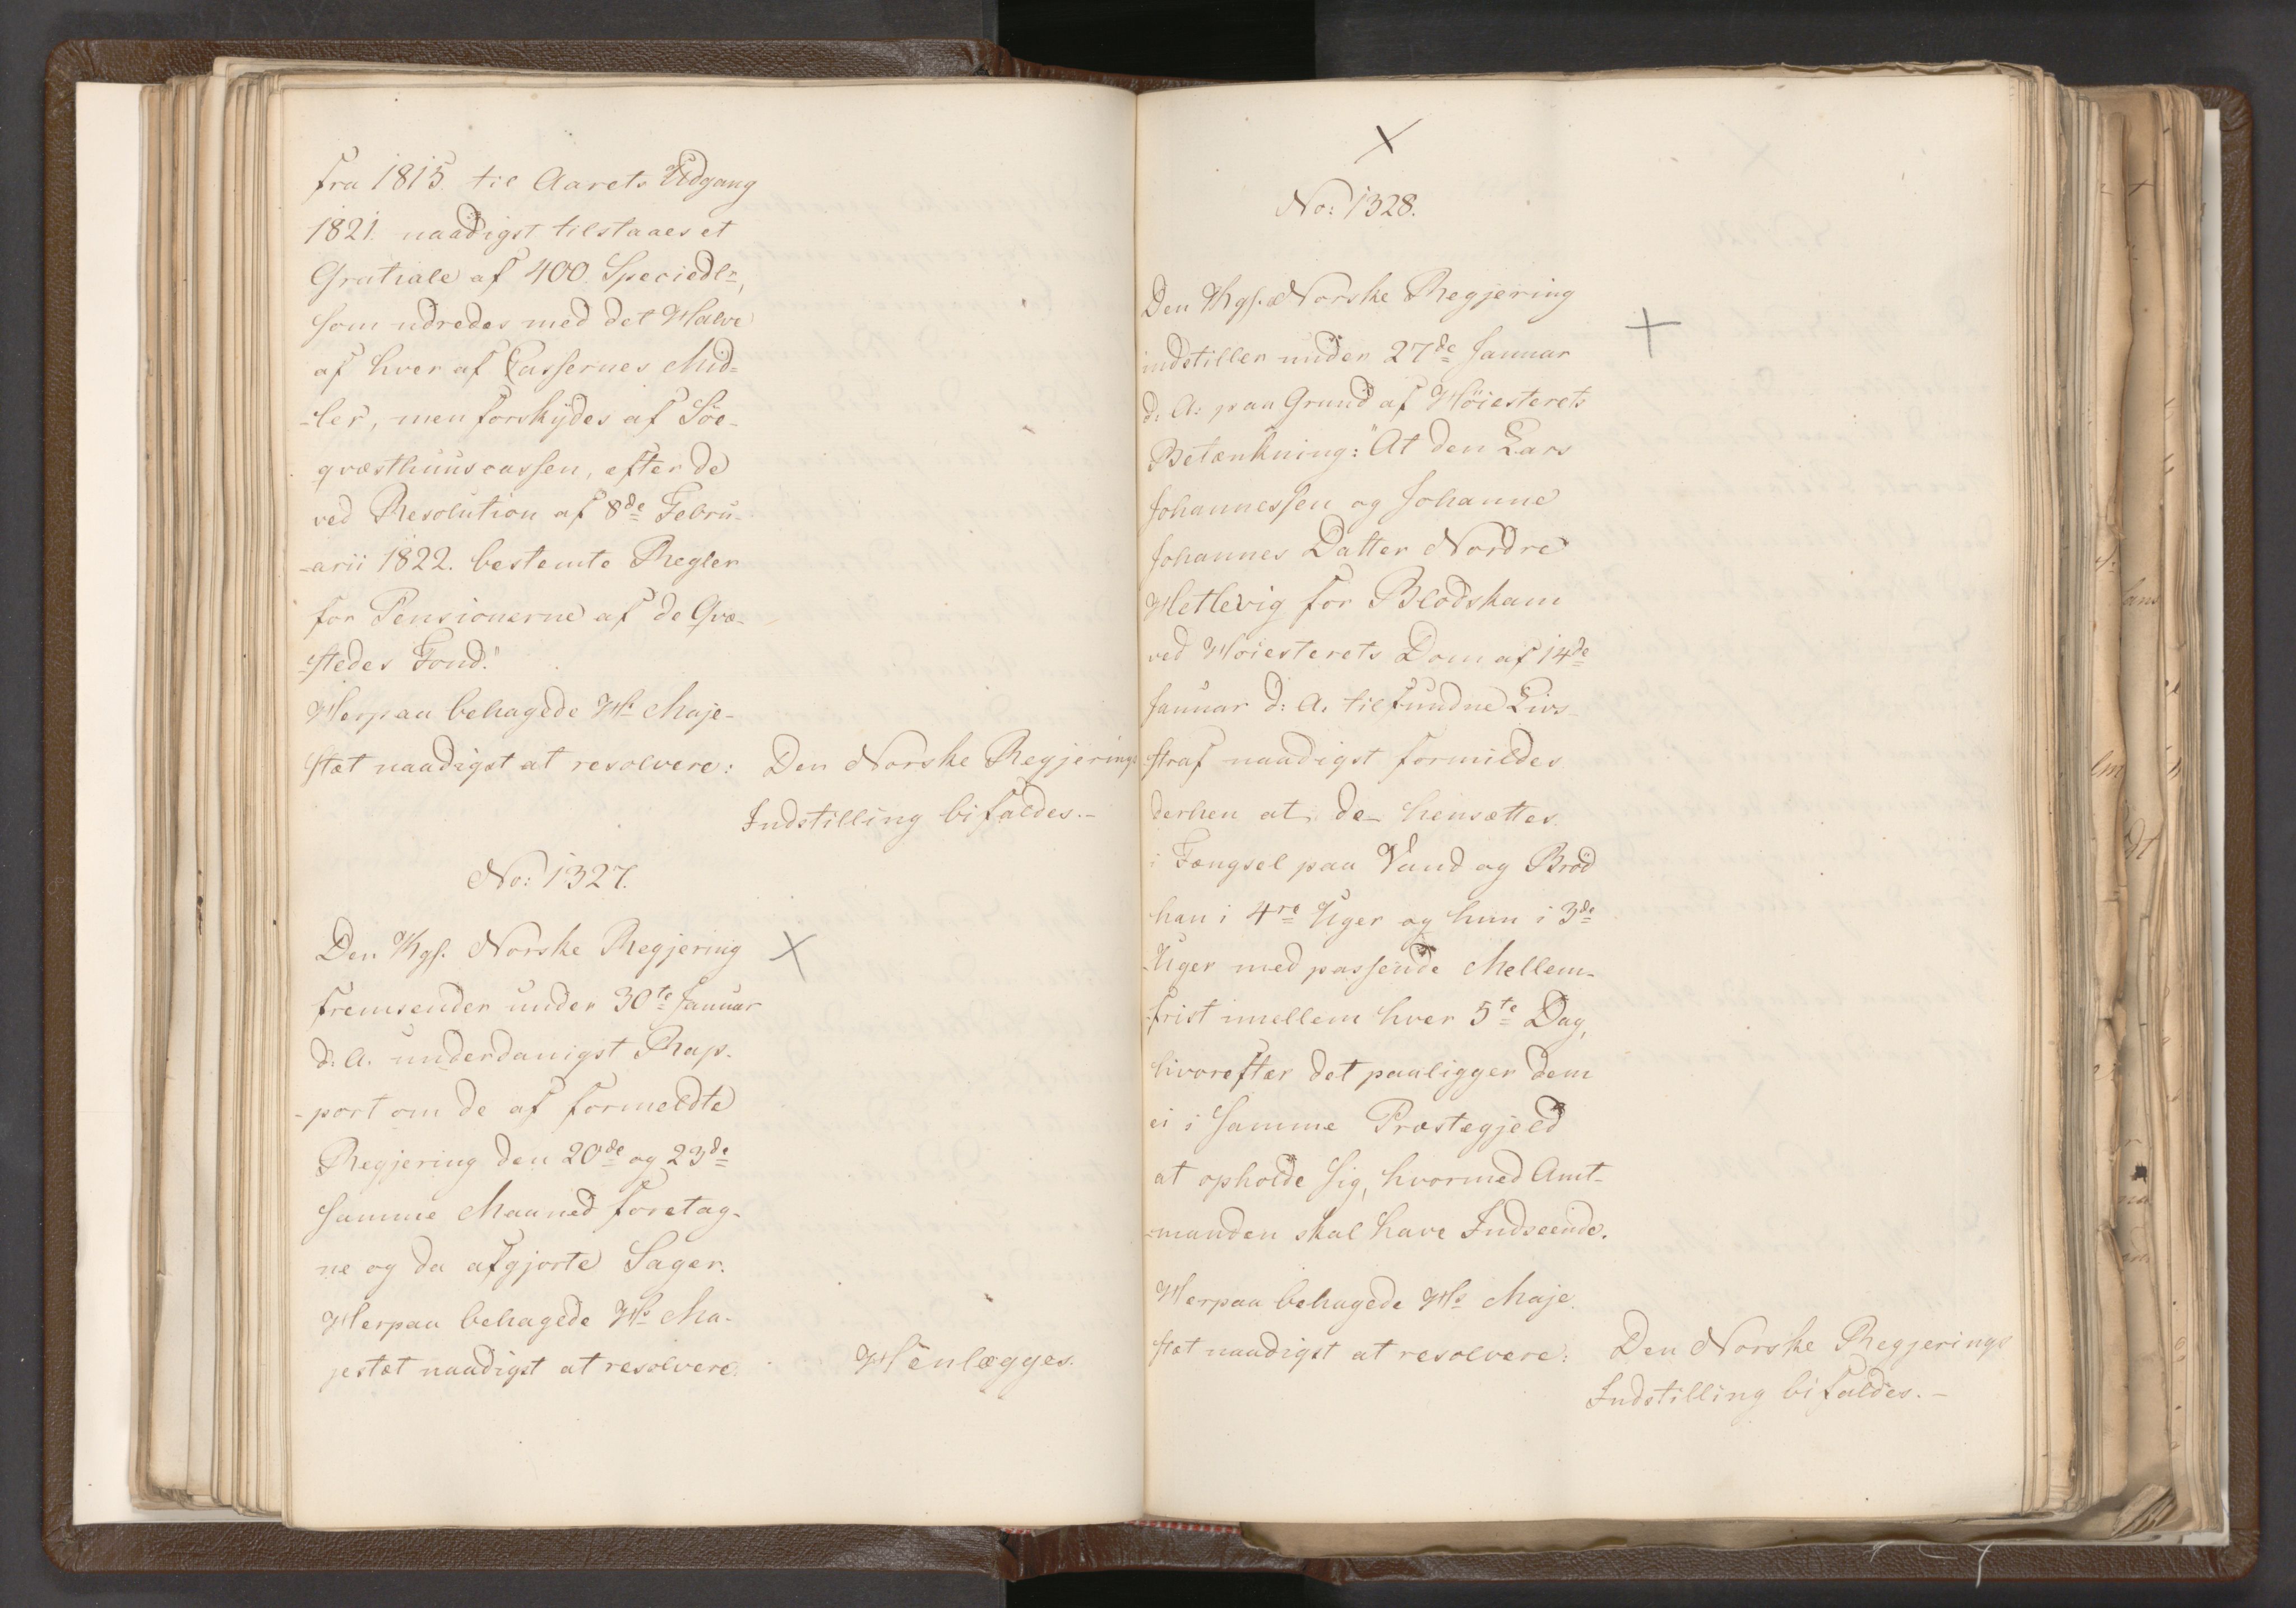 fra 1815. til Aarets Udgang
1821. naadigst tilstaaes et
Gratiale af 400 Speciedlr,
som udredes med det Halve
af hver af Cassernes Mid-
-ler, men forskydes af Söe-
qvæsthuuscassen, efter de
ved Resolution af 8de Febru-
-arii 1822. bestemte Regler
for Pensionerne af de Qvæ-
-stedes Fond."
Herpaa behagede Hs Maje-
stæt naadigst at resolvere:
Den Norske Regjerings
Indstilling bifaldes.-
No: 1327.
Den Kgs. Norske Regjering
fremsender under 30te Januar
d: A. underdanigst Rap-
-port om de af formeldte
Regjering den 20de og 23de
samme Maaned foretag-
ne og da afgjorte Sager.
Herpaa behagede Hs Ma-
jestæt naadigst at resolvere:
Henlægges.
No: 1328.
Den Kgs. Norske Regjering
indstiller under 27de Januar
d: A: paa Grund af Höiesterets
Betænkning: "At den Lars
Johannessen og Johanne
Johannes Datter Nordre
Hetlevig for Blodskam
ved Höiesterets Dom af 14de
Januar d: A. tilfundne Livs-
straf naadigst formildes
derhen at de hensættes
i Fængsel paa Vand og Bröd
han i 4re Uger og hun i 3de
Uger med passende Mellem-
-frist imellem hver 5te Dag,
hvorefter det paaligger dem
ei i samme Præstegjeld
at opholde sig, hvormed Amt-
-manden skal have Indseende.
Herpaa behagede Hs Maje
stæt naadigst at resolvere:
Den Norske Regjerings
Indstilling bifaldes.-